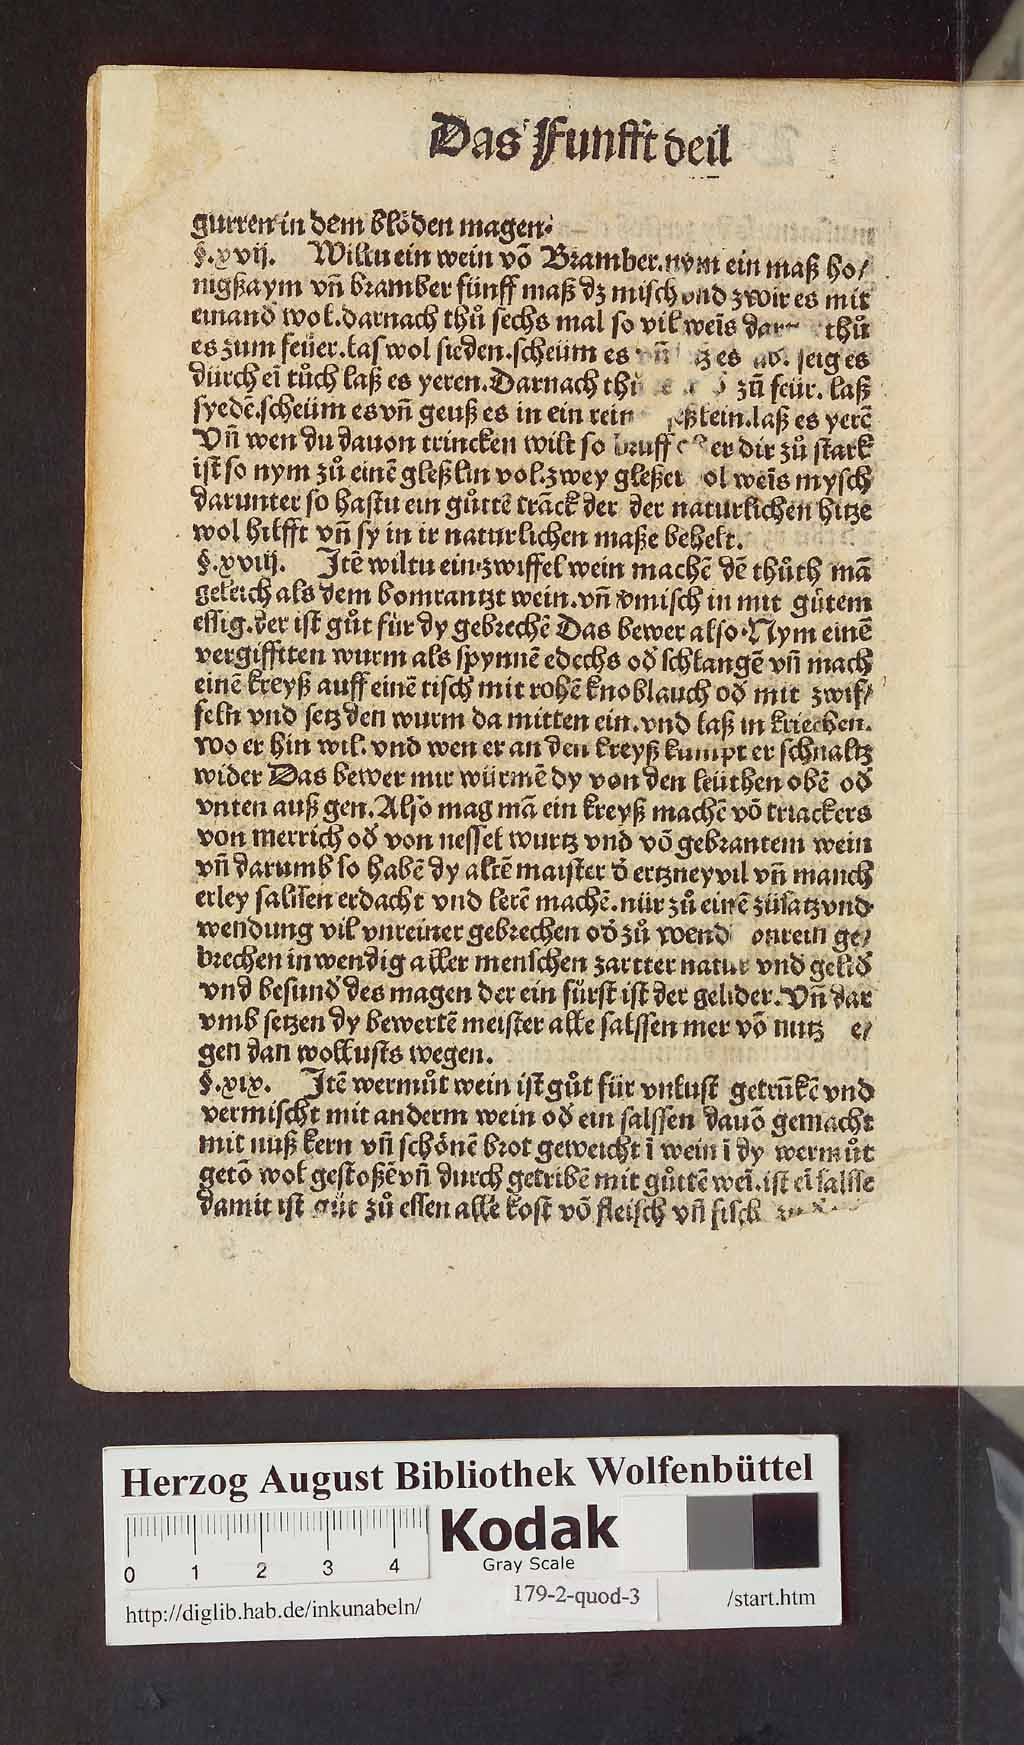 Das Funfft deil
gurren in dem blöden magen.
§.xvij. Wiltu ein wein võ Bramber.nym ein maß ho/
nigßaym vñ bramber fünff maß dz misch vnd zwir es mit
einand wol.darnach thů sechs mal so vil weīs thů
es zum feüer.las wol sieden.scheüm es es seig es
dürch eī tůch laß es yeren.Darnach zū feür. laß
syedē.scheüm es vñ geuß es in ein rein laß es yerē
Vñ wen du dauon trincken wilt so er dir zů stark
ist so nym zů einē gleßlin vol.zwey gleßer weīs mysch
darunter so hastu ein gůttē trāck der der naturlichen hitze
wol hilfft vñ sy in ir naturlichen maße behelt.
§.xviij. Itē wiltu ein zwiffel wein machē dē thůth mā
geleich als dem bomrantzt wein.vñ vmisch in mit gůtem
essig.der ist gůt für dy gebrechē Das bewer also.Nym einē
vergifften wurm als spynnē edechs od schlangē vñ mach
einē kreyß auff einē tisch mit rohē knoblauch od mit zwif/
feln vnd setz den wurm da mitten ein.vnd laß in kriechen.
wo er hin wil. vnd wen er an den kreyß kumpt er schnaltz
wider Das bewer mir würmē dy von den leüthen obē od
vnten auß gen.Also mag mā ein kreyß machē võ triackers
von merrich od von nessel wurtz vnd võ gebrantem wein
vñ darumb so habē dy altē maister d ertzney vil vñ manch
erley salssen erdacht vnd lerē machē.nür zů einē züsatz vnd
wendung vil vnreiner gebrechen od zů wend onrein ge/
brechen inwendig aller menschen zartter natur vnd gelid
vnd besund des magen der ein fürst ist der gelider.Vñ dar
vmb setzen dy bewertē meister alle salssen mer võ nutz e/
gen dan wollusts wegen.
§.xix. Itē wermůt wein ist gůt für vnlust getrūkē vnd
vermischt mit anderm wein od ein salssen dauõ gemacht
mit nuß kern vñ schönē brot geweicht ī wein ī dy wermůt
getõ wol gestoßē vñ durch getribē mit gůttē weī.ist eī salsse
damit ist gůt zů essen alle kost võ fleisch vñ fisch
Herzog August Bibliothek Wolfenbüttel
0 1 2 3 4
Kodak
Gray Scale
http://diglib.hab.de/inkunabeln/ 179-2-quod-3 /start.htm